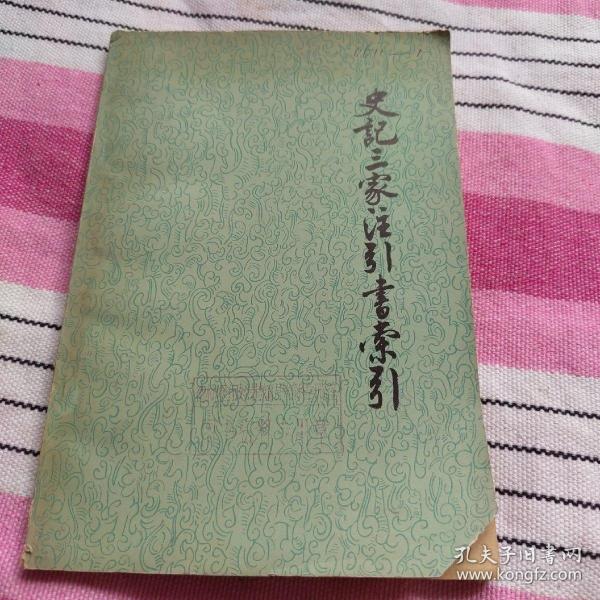 史記三家注引書索引
孔夫子旧书网
www.kongfz.com